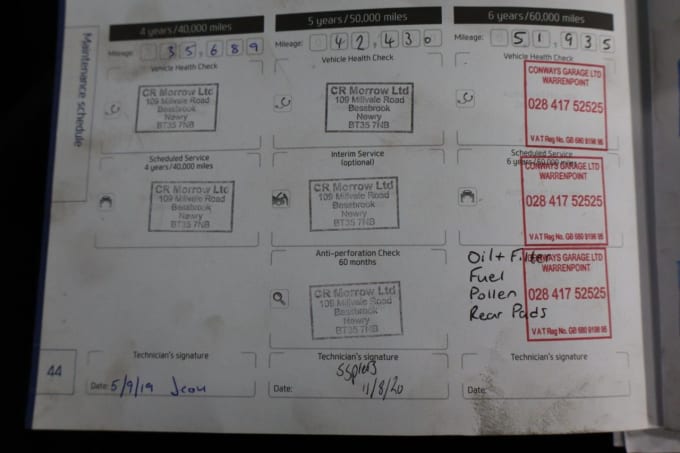 Maintenance schedule
4 years/40,000 miles
Mileage: 35,689
Vehicle Health Check
CR Morrow Ltd
109 Millvale Road
Bessbrook
Newry
BT35 7NB
Scheduled Service
4 years/40,000 miles
CR Morrow Ltd
109 Millvale Road
Bessbrook
Newry
BT35 7NB
Technician's signature
Date: 5/9/19
44
5 years/50,000 miles
Mileage: 42,430
Vehicle Health Check
CR Morrow Ltd
109 Millvale Road
Bessbrook
Newry
BT35 7NB
Interim Service
(optional)
CR Morrow Ltd
109 Millvale Road
Bessbrook
Newry
BT35 7NB
Anti-perforation Check
60 months
CR Morrow Ltd
109 Millvale Road
Bessbrook
Newry
BT35 7NB
Technician's signature
Date: 11/8/20
6 years/60,000 miles
Mileage: 51,935
Vehicle Health Check
CONWAYS GARAGE LTD
WARRENPOINT
028 417 52525
VAT Reg No. GB
Scheduled Service
6 years/60,000 miles
CONWAYS GARAGE LTD
WARRENPOINT
028 417 52525
VAT Reg No. GB
Oil + Filter
Fuel
Pollen
Rear Pads
CONWAYS GARAGE LTD
WARRENPOINT
028 417 52525
VAT Reg No. GB
Technician's signature
Date: